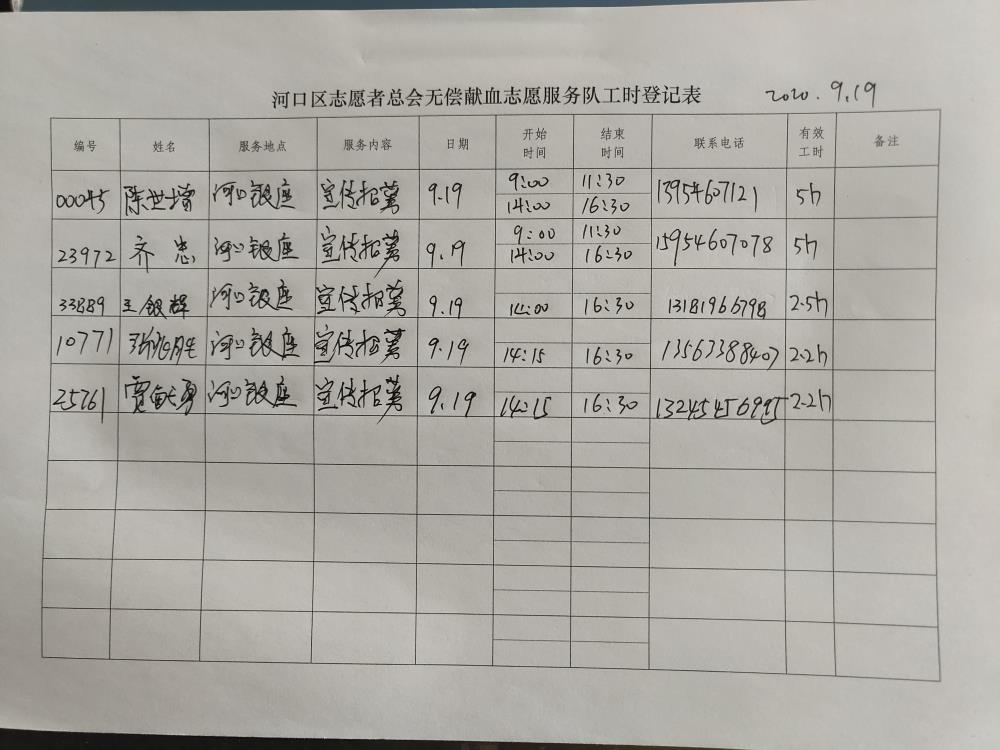 河口区志愿者总会无偿献血志愿服务队工时登记表 2020.9.19
编号 姓名 服务地点 服务内容 日期 开始时间 结束时间 联系电话 有效工时 备注
00045 陈世增 河口银座 宣传招募 9.19 9:00 11:30 13954607121 5h
14:00 16:30
23972 齐忠 河口银座 宣传招募 9.19 9:00 11:30 15954607078 5h
14:00 16:30
33889 王银辉 河口银座 宣传招募 9.19 14:00 16:30 13181966798 2.5h
10771 河口银座 宣传招募 9.19 14:15 16:30 13563388407 2.2h
25761 河口银座 宣传招募 9.19 14:15 16:30 13245456995 2.2h